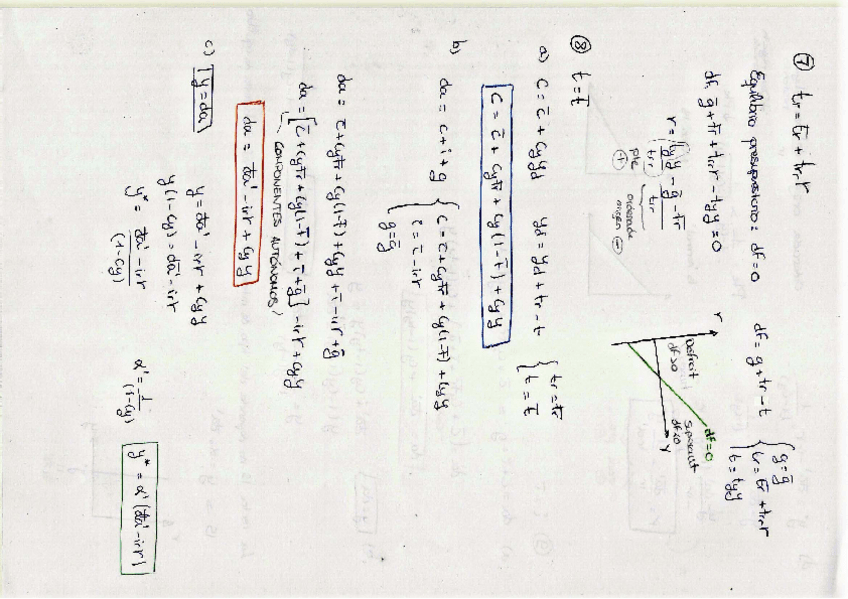 ⑦ tr = t̅r̅ + tr_r r
Equilibrio presupuestario: df=0
df = g + tr - t { g = g̅
tr = t̅r̅ + tr_r r
t = t_y y
df: g̅ + t̅r̅ + tr_r r - t_y y = 0
r = t_y y / tr_r - g̅ - t̅r̅ / tr_r
pte ⊕
ordenada
origen ⊖
r
Déficit
df>0
df=0
superávit
df<0
y
⑧ t = t̅
a) c = c̅ + c_y yd
yd = yd + tr - t { tr = t̅r̅
t = t̅
c = c̅ + c_y t̅r̅ + c_y (1-t̅) + c_y y
b) da = c + i + g { c = c̅ + c_y t̅r̅ + c_y (1-t̅) + c_y y
i = i̅ - i_r r
g = g̅
da = c̅ + c_y t̅r̅ + c_y (1-t̅) + c_y y + i̅ - i_r r + g̅
da = [c̅ + c_y t̅r̅ + c_y (1-t̅) + i̅ + g̅] - i_r r + c_y y
COMPONENTES AUTÓNOMOS
da = d̅a̅' - i_r r + c_y y
c) y = da
y = d̅a̅' - i_r r + c_y y
y (1-c_y) = d̅a̅' - i_r r
y* = d̅a̅' - i_r r / (1-c_y)
α' = 1 / (1-c_y)
y* = α' (d̅a̅' - i_r r)